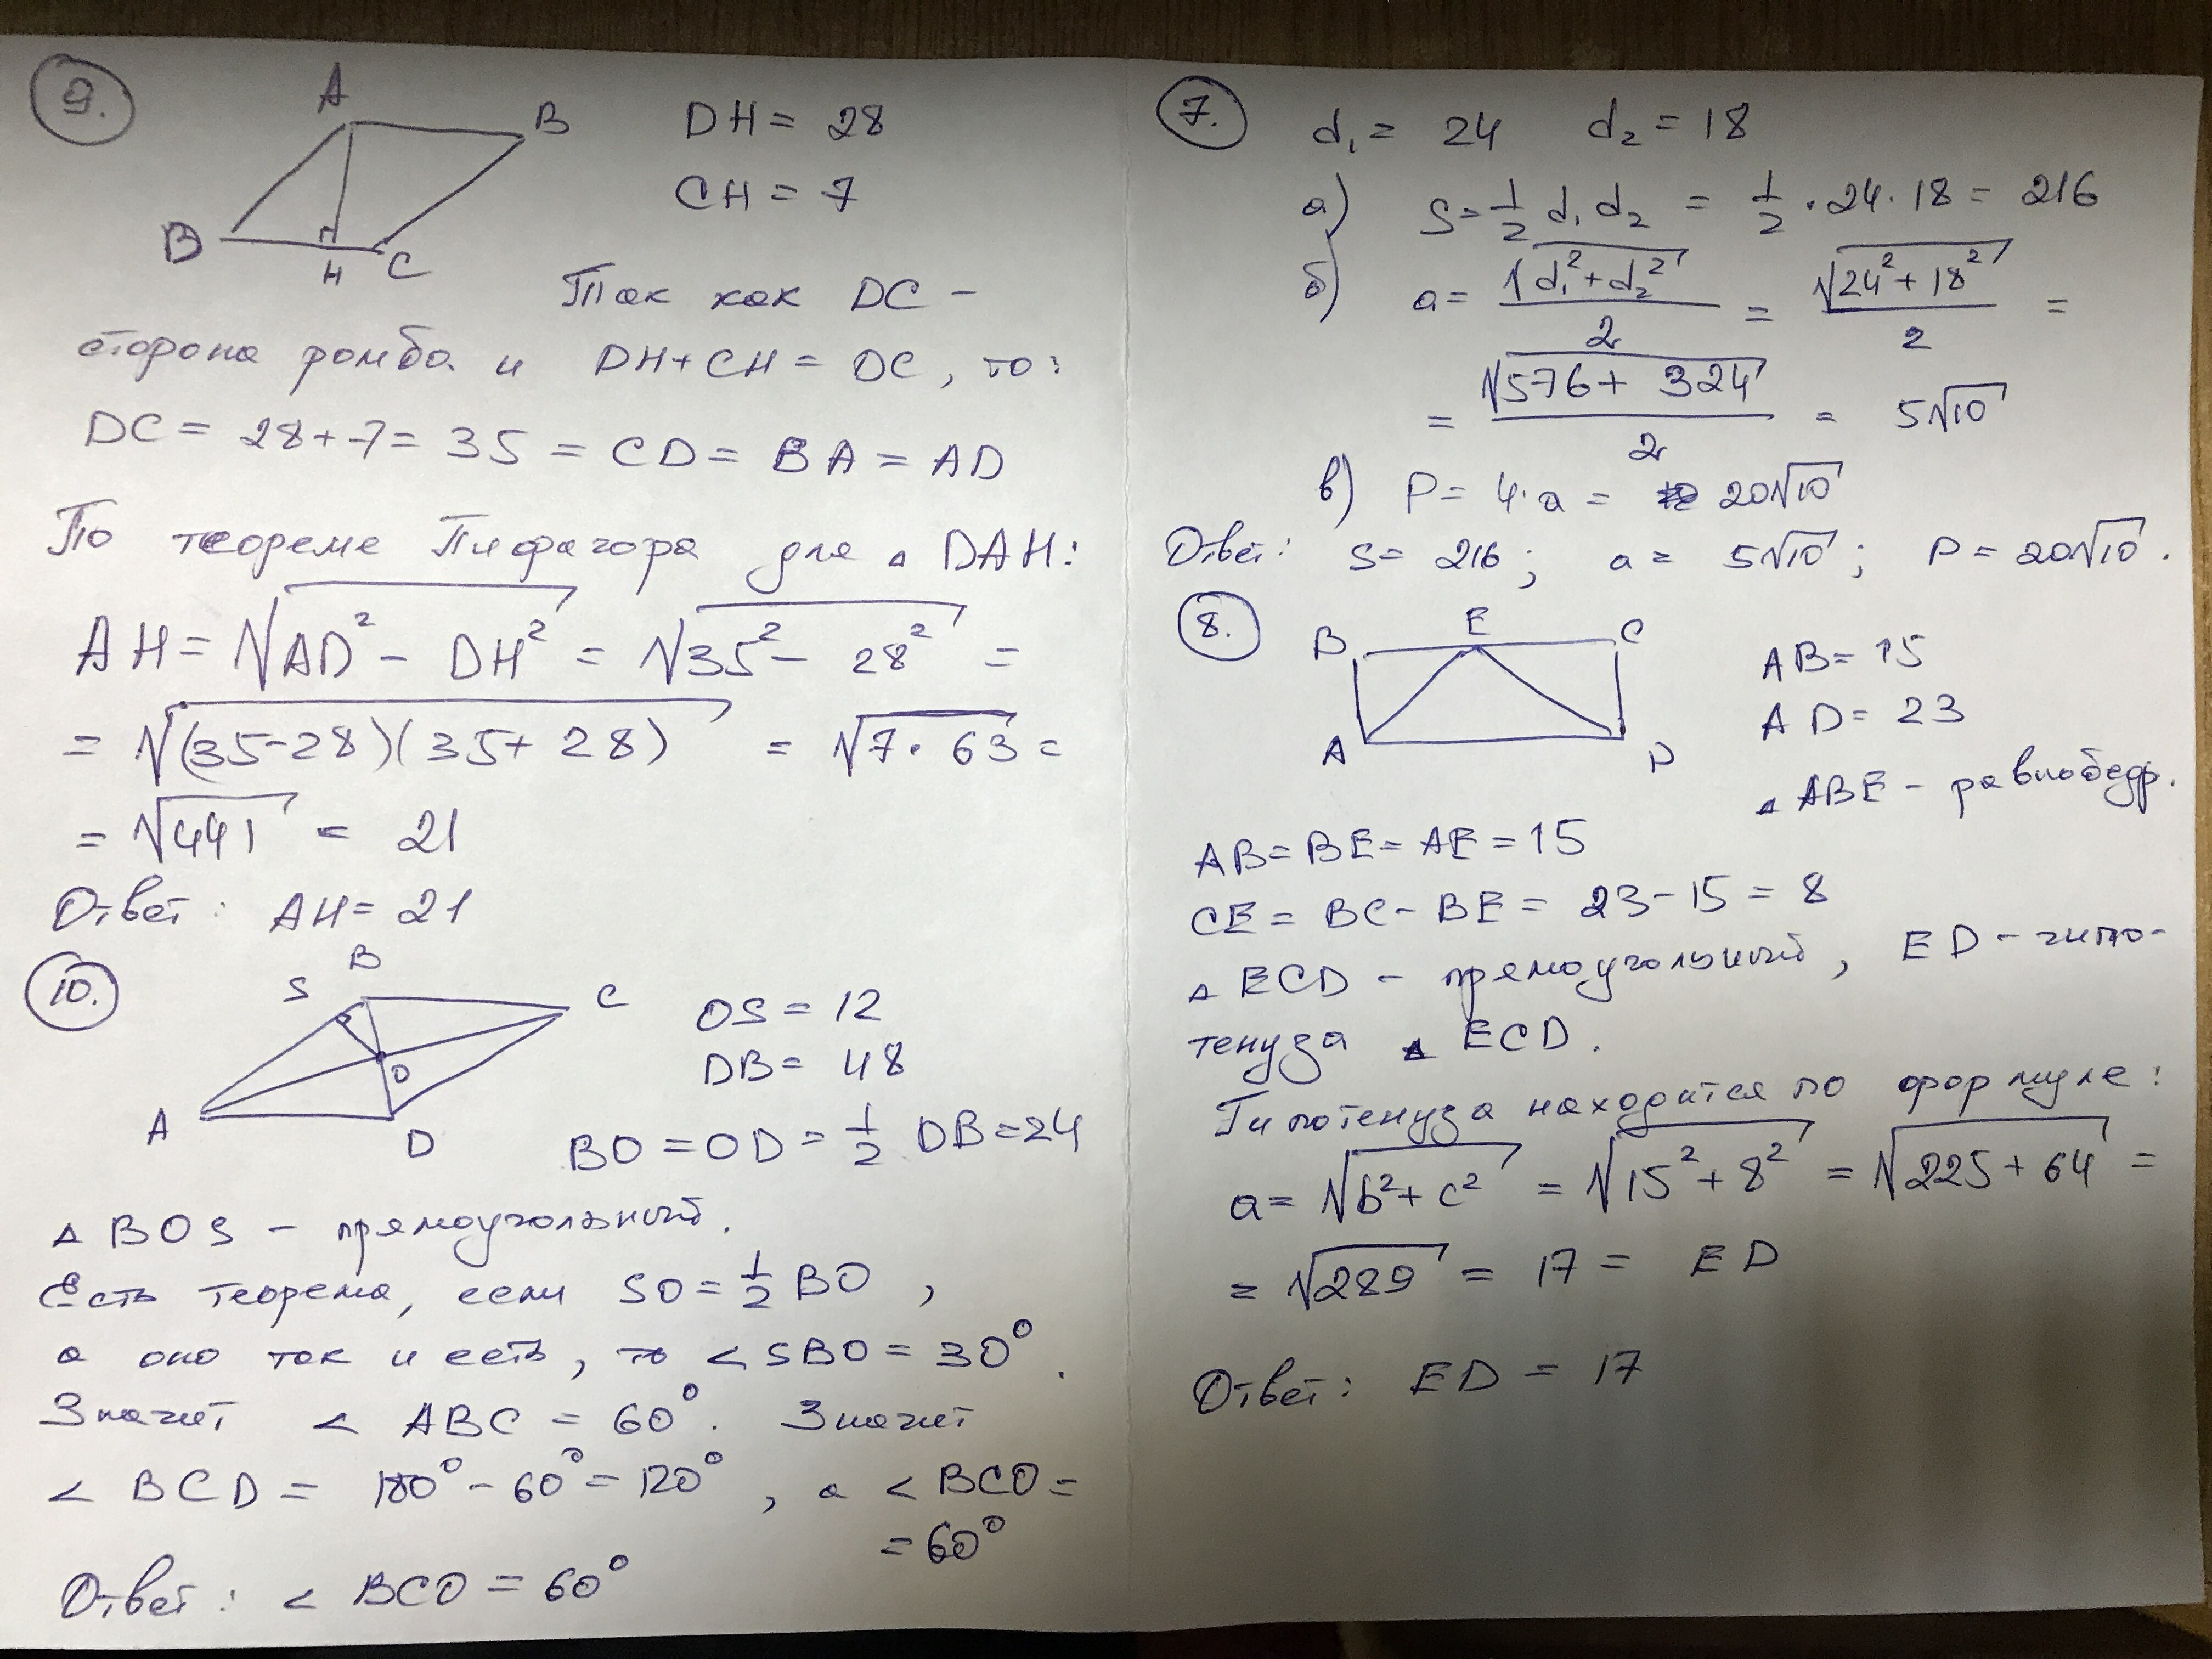 9.
A
B
B
H
C
DH = 28
CH = 7
Так как DC -
сторона ромба и DH + CH = DC, то:
DC = 28 + 7 = 35 = CD = BA = AD
По теореме Пифагора для △ DAH:
AH = √(AD² - DH²) = √(35² - 28²) =
= √((35-28)(35+28)) = √(7 · 63) =
= √441 = 21
Ответ: AH = 21
10.
S
B
C
O
A
D
OS = 12
DB = 48
BO = OD = 1/2 DB = 24
△ BOS - прямоугольный.
Есть теорема, если SO = 1/2 BO,
а оно так и есть, то < SBO = 30°.
Значит < ABC = 60°. Значит
< BCD = 180° - 60° = 120°, а < BCO =
= 60°
Ответ: < BCO = 60°
7.
d₁ = 24 d₂ = 18
а) S = 1/2 d₁ d₂ = 1/2 · 24 · 18 = 216
б) a = √(d₁² + d₂²)/2 = √(24² + 18²)/2 =
= √(576 + 324)/2 = 5√10
в) P = 4 · a = 20√10
Ответ: S = 216; a = 5√10; P = 20√10.
8.
B
E
C
A
D
AB = 15
AD = 23
△ ABE - равнобедр.
AB = BE = AE = 15
CE = BC - BE = 23 - 15 = 8
△ ECD - прямоугольный, ED - гипо-
тенуза △ ECD.
Гипотенуза находится по формуле:
a = √(b² + c²) = √(15² + 8²) = √(225 + 64) =
= √289 = 17 = ED
Ответ: ED = 17